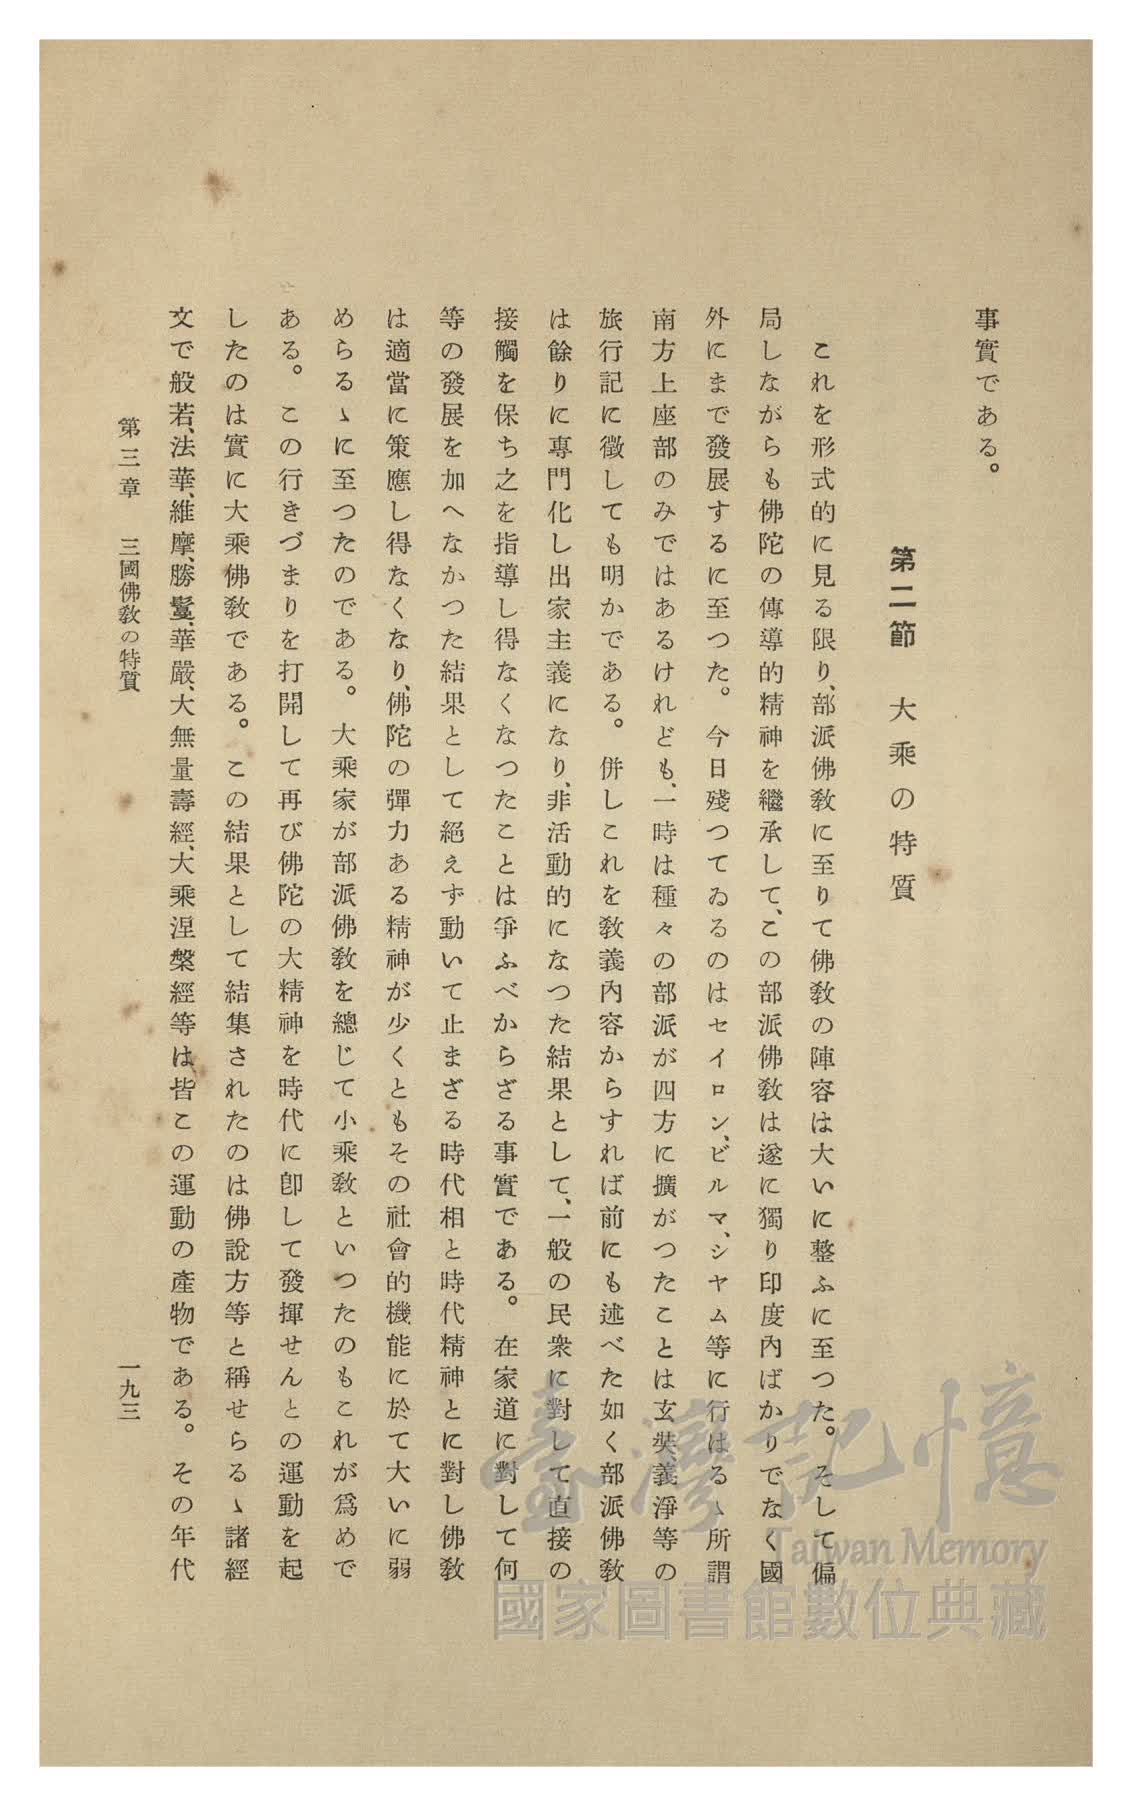 事實である。
第二節　大乘の特質
これを形式的に見る限り、部派佛教に至りて佛教の陣容は大いに整ふに至つた。そして偏
局しながらも佛陀の傳導的精神を繼承して、この部派佛教は遂に獨り印度內ばかりでなく國
外にまで發展するに至つた。今日殘つてゐるのはセイロン、ビルマ、シヤム等に行はるゝ所謂
南方上座部のみではあるけれども、一時は種々の部派が四方に擴がつたことは玄奘、義淨等の
旅行記に徵しても明かである。併しこれを教義內容からすれば前にも述べた如く部派佛教
は餘りに專門化し出家主義になり、非活動的になつた結果として、一般の民衆に對して直接の
接觸を保ち之を指導し得なくなつたことは爭ふべからざる事實である。在家道に對して何
等の發展を加へなかつた結果として絕えず動いて止まざる時代相と時代精神とに對し佛教
は適當に策應し得なくなり、佛陀の彈力ある精神が少くともその社會的機能に於て大いに弱
めらるゝに至つたのである。大乘家が部派佛教を總じて小乘教といつたのもこれが爲めで
ある。この行きづまりを打開して再び佛陀の大精神を時代に卽して發揮せんとの運動を起
したのは實に大乘佛教である。この結果として結集されたのは佛說方等と稱せらるゝ諸經
文で般若、法華、維摩、勝鬘、華嚴、大無量壽經、大乘涅槃經等は皆この運動の產物である。その年代
第三章　三國佛教の特質　一九三
臺灣記憶
Taiwan Memory
國家圖書館數位典藏